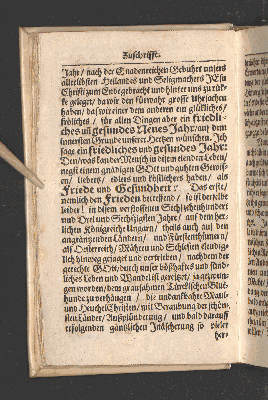 Zuschrifft.
Jahr / nach der Gnadenreichen Gebuhrt unsers
allerliebsten Heilandes und Seligmachers JEsu
Christi zum Ende gebracht und hinter uns zu rük-
ke geleget / havor den fürwahr grosse Uhrsachen
haben / das wir einer dem anderen ein glükliches /
frödliches / für allen Dingen aber ein friedli-
ches uñ gesundes Neues Jahr / auß dem
innersten Grunde unserer Hertzen wünschen. Ich
sage ein friedliches und gesundes Jahr:
Den / was kan der Mensch in disem elenden Leben /
negst einem gnädigen GOtt und guhten Gewis-
sen / liebers / edlers und köstlichers haben / als
Friede und Gesundheit? Das erste /
nemlich den Frieden betreffend / so ist derselbe
leider! in disem verflossenen Sechszehnhundert
und Drei und Sechszigsten Jahre / auß dem her-
lichen Königreiche Ungarn / theils auch auß den
angräntzenden Ländern / und Fürstenthümern /
als Oesterreich / Mähren und Schlesien elendig-
lich hinweg gejaget und vertrieben / nachdem der
gerechte GOtt / durch unser boßhaftes und sünd-
liches Leben und Wandel ist gereitzet / ja gezwun-
gen worden / dem grausahmen Türkischen Blut-
hunde zu verhängen / die undankbahre Maul-
und Heuchel Christen / mit Beraubung der schön-
sten Länder / Außplünderung / und bald darauff
erfolgenden gäntzlichen Einäscherung so vieler
her-